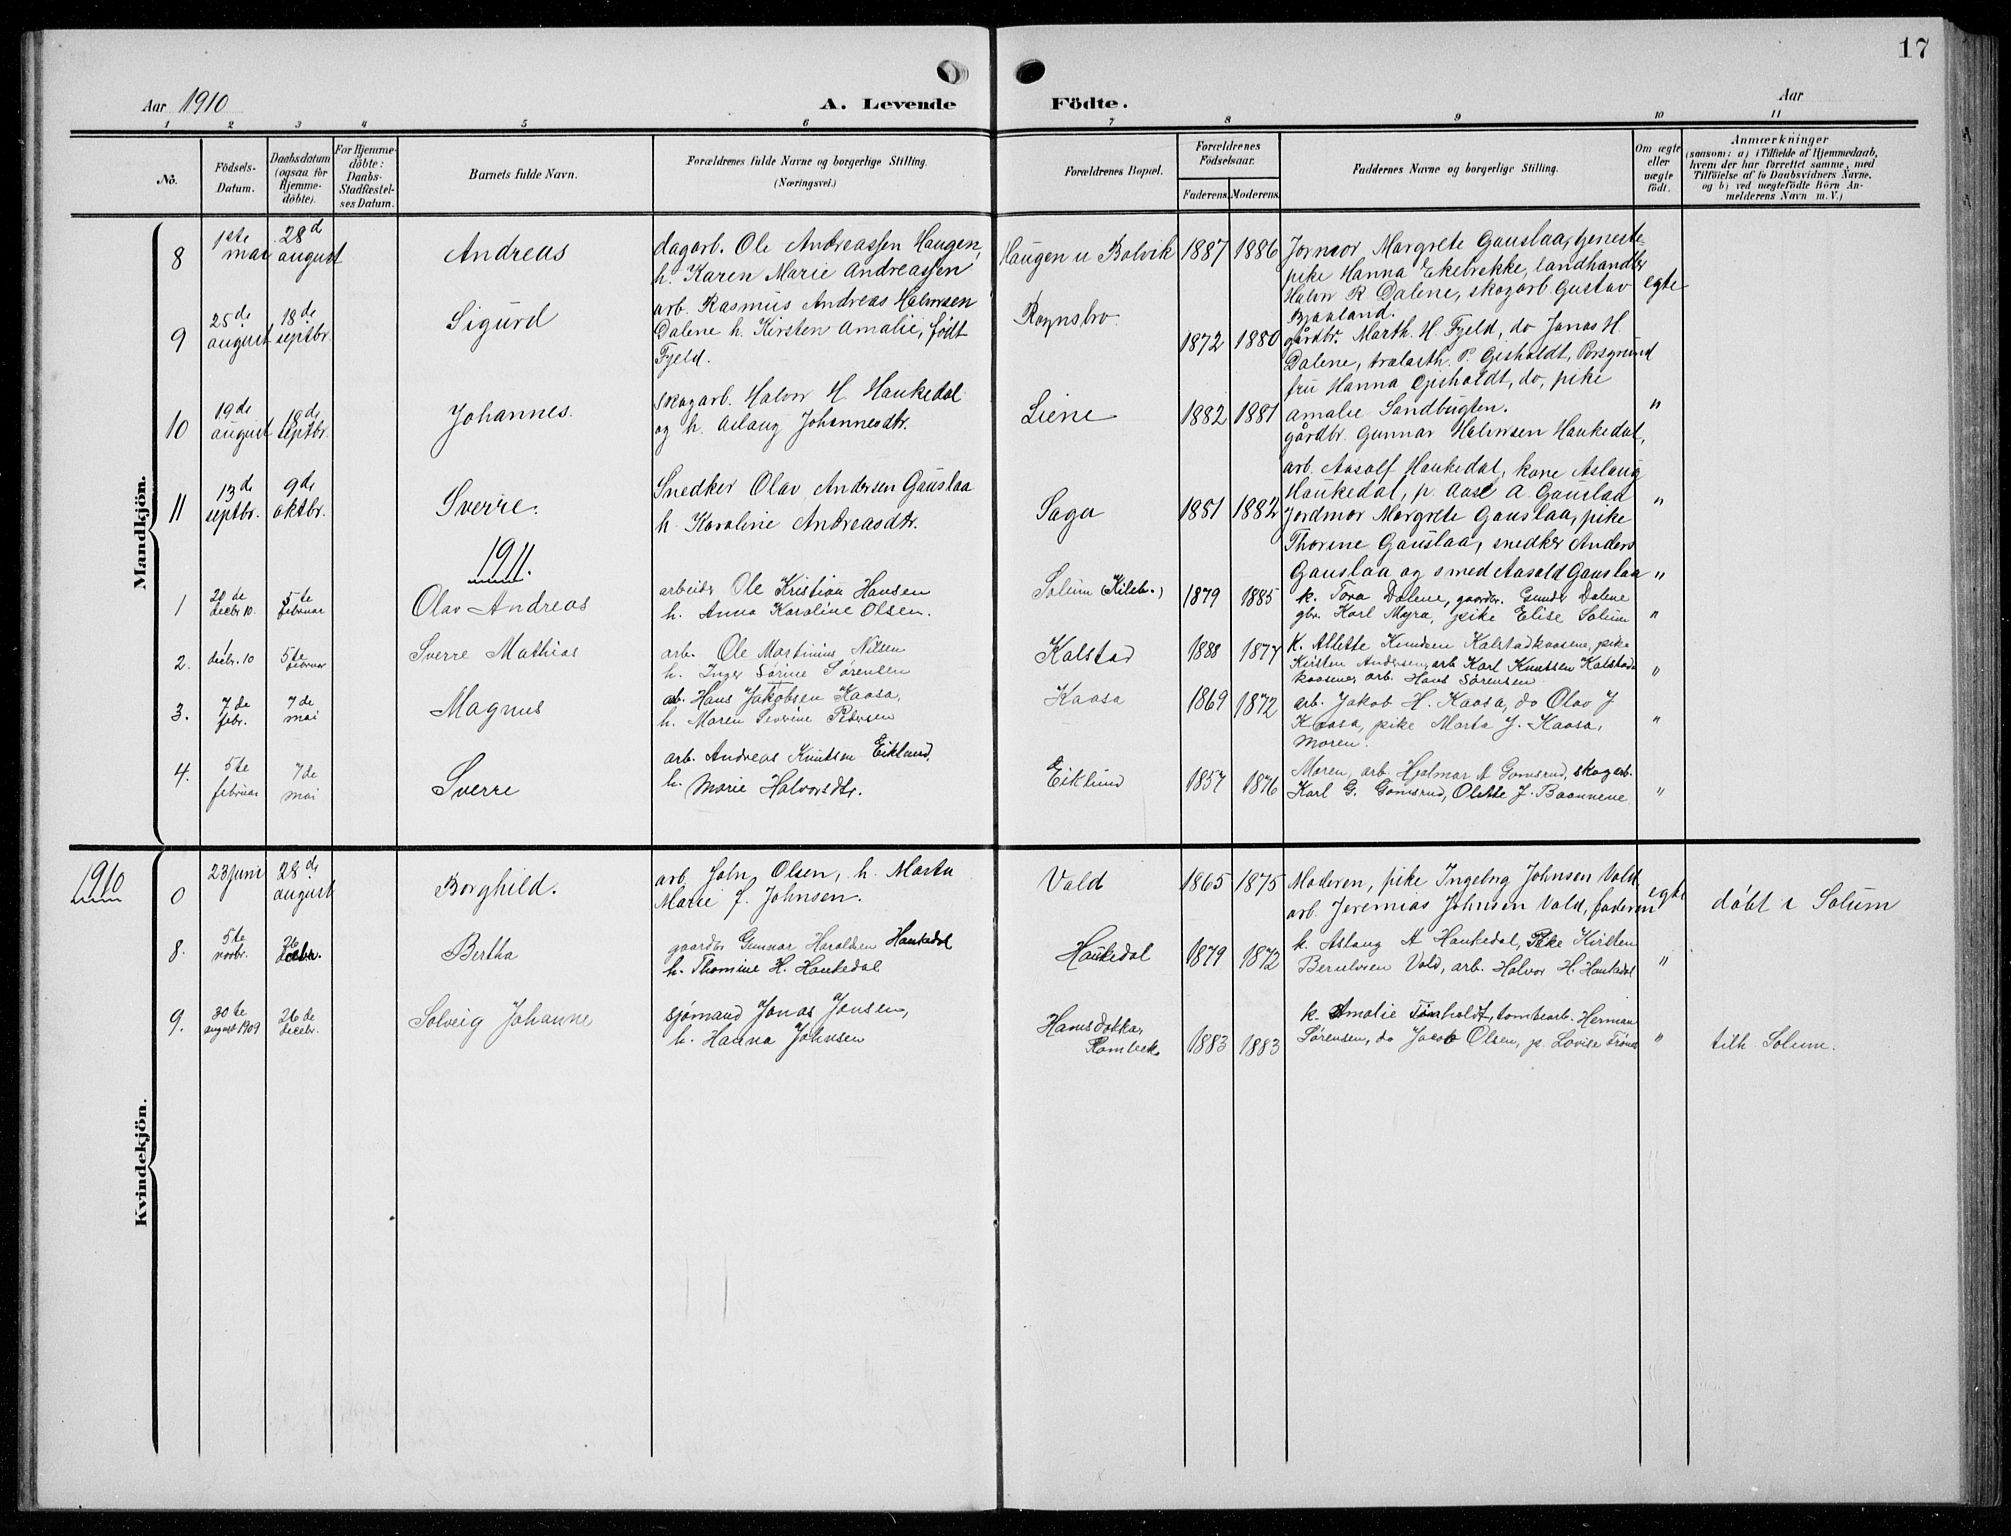 17
Aar 1910
A. Levende
Födte.
Aar
1 2 3 4 5 6 7 8 9 10 11
No.
Födsels-Datum.
Daabsdatum (ogsaa for Hjemme-döbte).
For Hjemme-döbte: Daabs-Stadfæstel-ses Datum.
Barnets fulde Navn.
Forældrenes fulde Navne og borgerlige Stilling.
(Næringsvei.)
Forældrenes Bopæl.
Forældrenes Födselsaar.
Faderens. Moderens.
Faddernes Navne og borgerlige Stilling.
Om ægte eller uægte födt.
Anmærkninger
(saasom: a) i Tilfælde af Hjemmedaab,
hvem der har forrettet samme, med
Tilföielse af to Daabsvidners Navne.
og b) ved uægtefödte Börn An-
melderens Navn m. V.)
Mandkjön.
8 1ste mai 28d august Andreas
dagarb. Ole Andreassen Haugen,
h. Karen Marie Andreassen
Haugen u Bolvik 1887 1886
Jormor Margrete Gauslaa, tjeneste-
pike Hanna Ekebrekke, landhandler
Halvor R Dalene, skogarb. Gustav
Bjaaland.
egte
9 25de august 18de septbr. Sigurd
arb. Rasmus Andreas Halvorsen
Dalene h. Kirsten Amalie, født
Fjeld.
Rognsbro. 1872 1880
gårdbr. Marth. H. Fjeld, do Jonas H.
Dalene, P. Gisholdt, Porsgrund
fru Hanna Gisholdt, do, pike
Amalie Sandbugten.
"
10 19de august 18de septbr. Johannes.
skogarb. Halvor H. Haukedal
og h. Aslaug Johannesdtr.
Liene 1882 1881
gårdbr. Gunnar Halvorsen Haukedal,
arb. Aasolf Haukedal, kone Aslaug
Haukedal, p. Aase A. Gauslaa
"
11 13de septbr. 9de oktbr. Sverre.
Snedker Olav Andersen Gauslaa
h. Karoline Andreasdtr.
Saga 1881 1882
Jordmor Margrete Gauslaa, pike
Thorine Gauslaa, snedker Anders
Gauslaa og smed Aasold Gauslaa
"
1911.
1 20de decbr 10. 5te februar Olav Andreas
arbeider Ole Kristian Hansen
h. Anna Karoline Olsen.
Solum (Kileb.) 1879 1885
k. Tora Dalene, gaardbr. Gunder Dalene
gbr. Karl Myra, pike Elise Solum
"
2. decbr. 10 5te februar Sverre Mathias
arb. Ole Martinius Nilsen
h. Inger Sørine Sørensen
Kalstad 1888 1877
k. Allette Knudsen Kalstadkaasene, pike
Kirsten Andersen, arb. Karl Knutsen Kalstad-
kaasene, arb. Hans Sørensen
"
3. 7de febr. 7de mai Magnus
arb. Hans Jakobsen Kaasa,
h. Maren Severine Pedersen
Kaasa 1869 1872
arb. Jakob H. Kaasa, do Olav J
Kaasa, pike Marta J. Kaasa,
Moren.
"
4. 5te februar 7de mai Sverre
arb. Andreas Knutsen Eiklund,
h. Marie Halvorsdtr.
Eiklund 1857 1876
Moren, arb. Hjalmar A Gomsrud, skogarb.
Karl G. Gomsrud, Olette J. Baannene
"
Kvindekjön.
1910
0 23 juni 28de august Borghild.
arb. John Olsen, h. Marta
Marie f. Johnsen.
Vold 1865 1875
Moderen, pike Ingeborg Johnsen Vold
arb. Jeremias Johnsen Vold, faderen
egte
døbt i Solum
8. 5te novbr. 26 decbr. Bertha
gaardbr Gunnar Haraldsen Haukedal
h. Thomine H. Haukedal
Haukedal 1879 1872
k. Aslaug A Haukedal, Pike Kirsten
Berntsen Vold, arb. Halvor H. Haukedal
"
9. 30te august 1909 26de decbr. Solveig Johanne
sjømand Jonas Jonsen,
h. Hanna Johnsen
Hansdokka, 1883 1883
k. Amalie Tønholdt, tomtearb. Herman
Sørensen, do Jacob Olsen, p. Lovise
"
tilh. Solum.